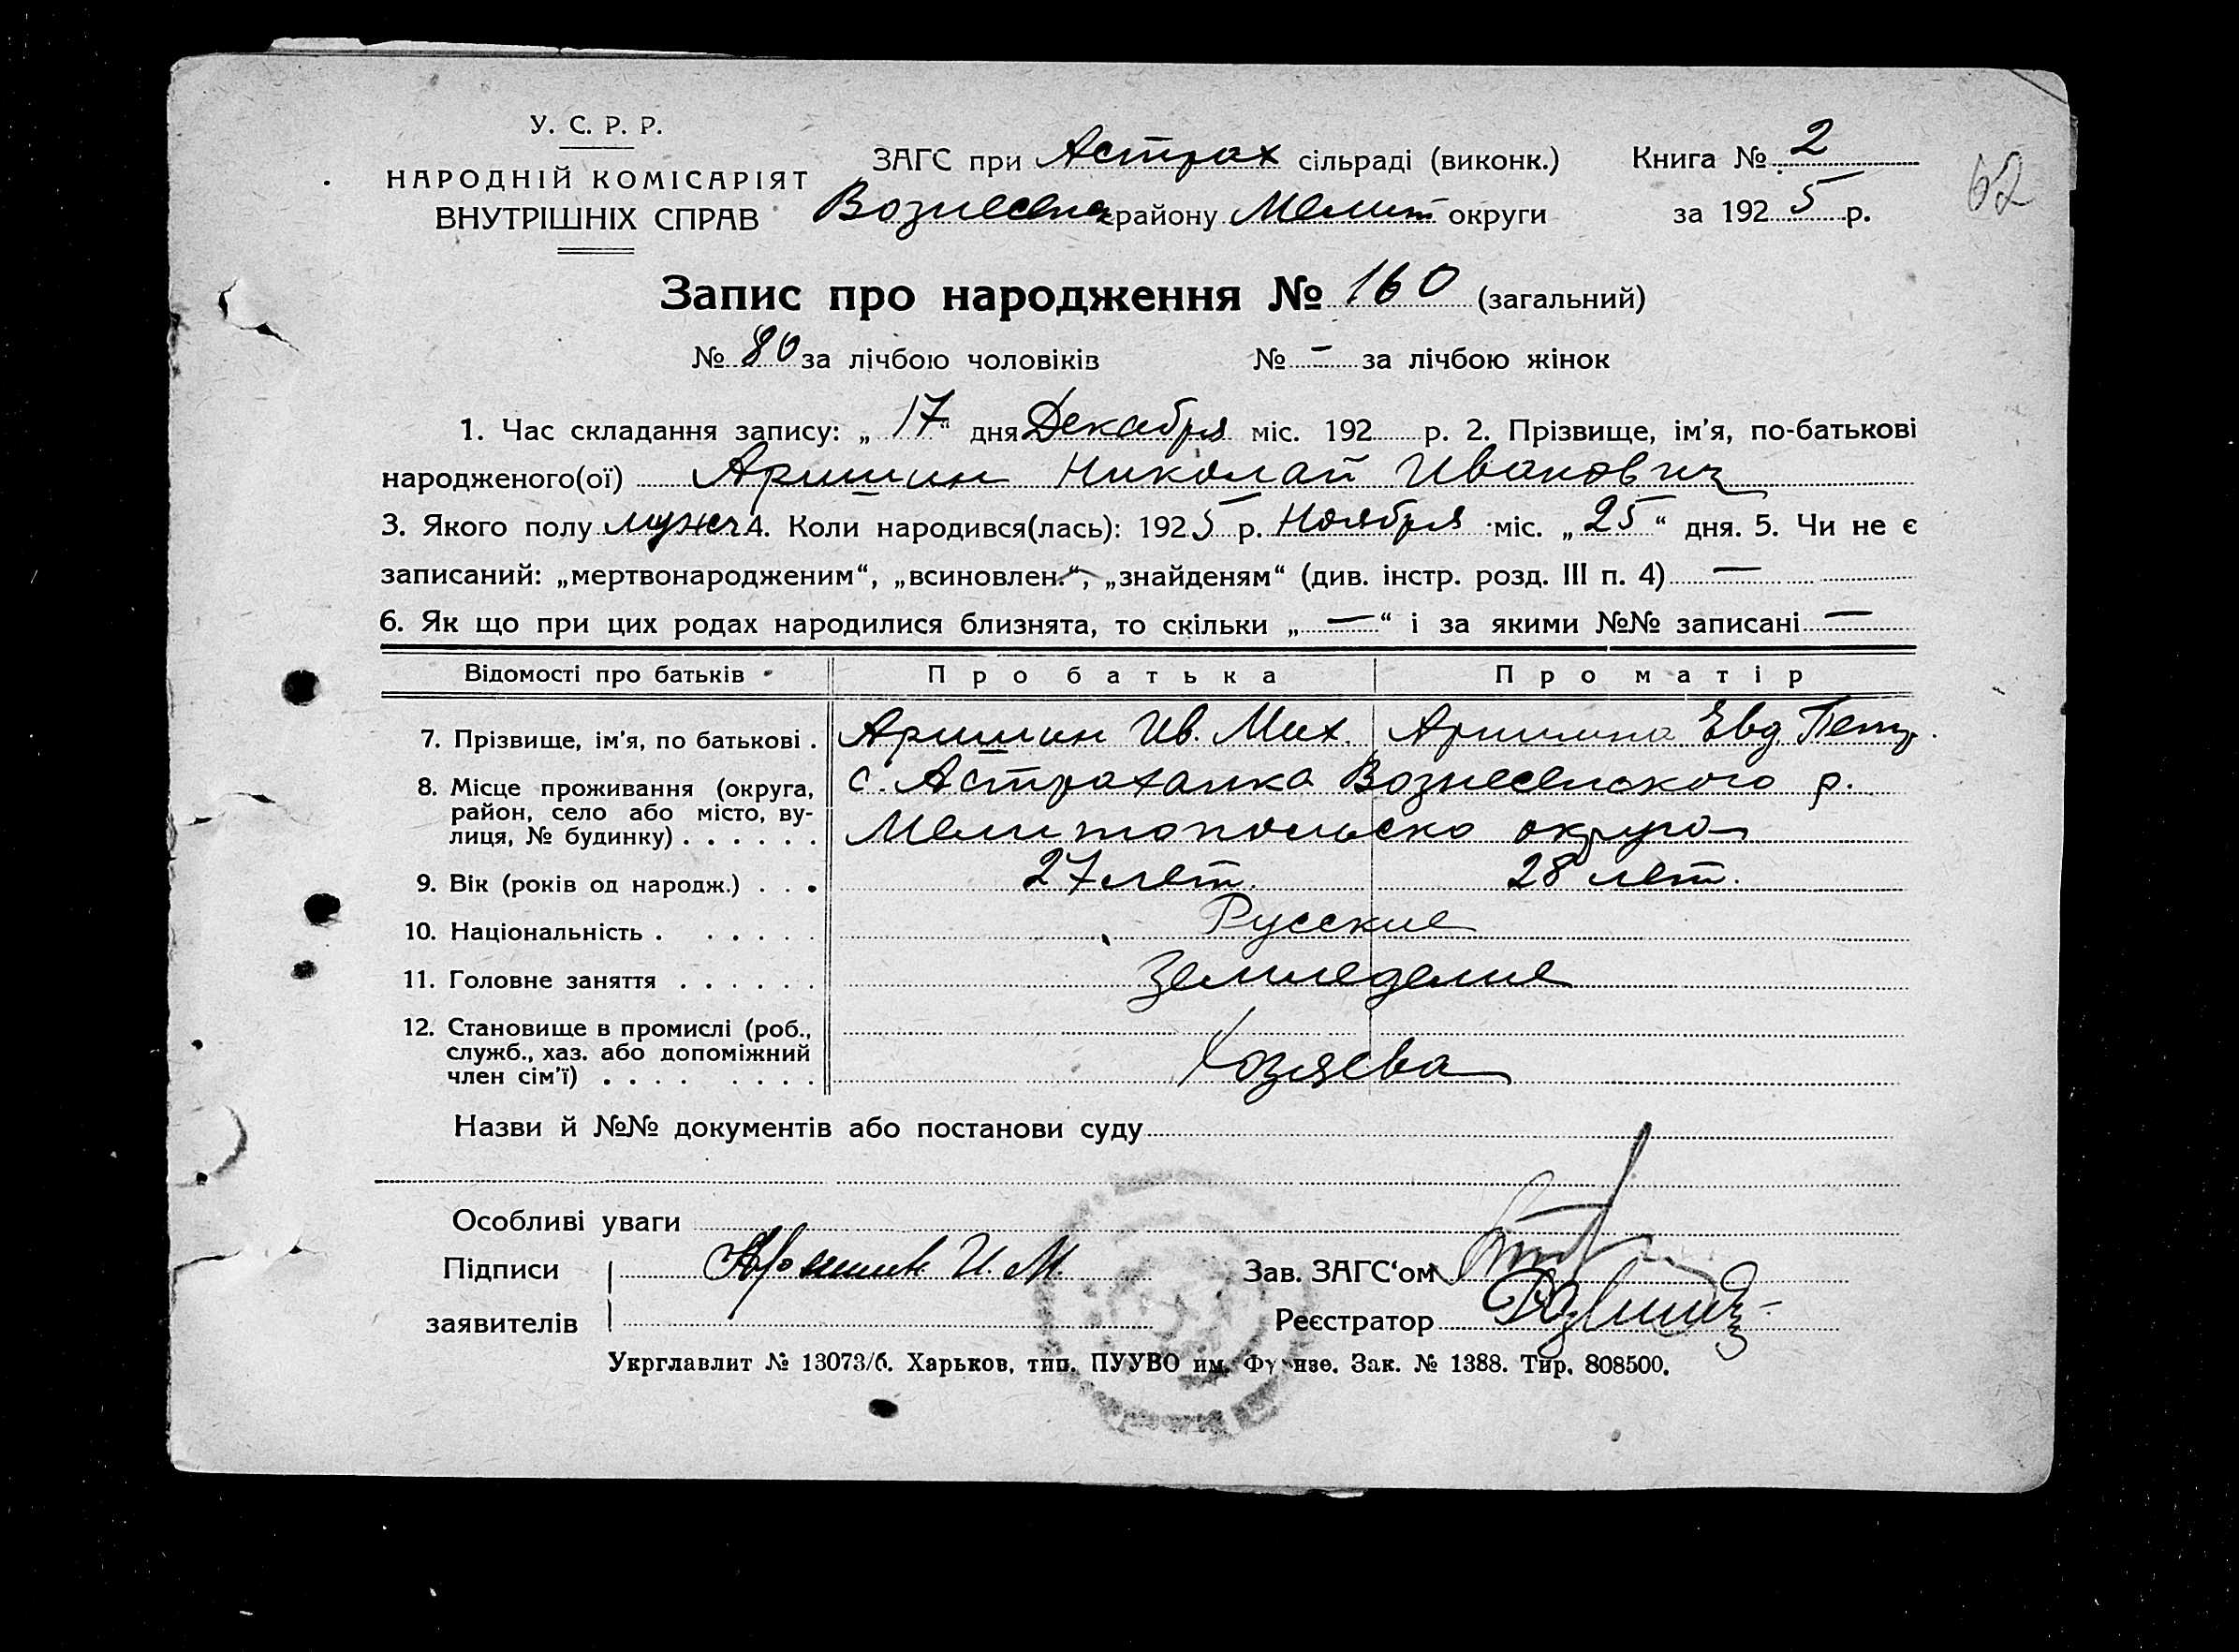 У. С. Р. Р.
НАРОДНІЙ КОМІСАРІЯТ
ВНУТРІШНІХ СПРАВ
ЗАГС при Астрах сільраді (виконк.)
Вознесенск району Мелит округи
Книга № 2
за 1925 р.
62
Запис про народження № 160 (загальний)
№ 80 за лічбою чоловіків № — за лічбою жінок
1. Час складання запису: „17“ дня Декабря міс. 192 р. 2. Прізвище, ім'я, по-батькові
народженого(ої) Аришин Николай Иванович
3. Якого полу мужс 4. Коли народився(лась): 1925 р. Ноября міс. „25“ дня. 5. Чи не є
записаний: „мертвонародженим“, „всиновлен.“, „знайденям“ (див. інстр. розд. III п. 4) —
6. Як що при цих родах народилися близнята, то скільки „—“ і за якими №№ записані —
Відомості про батьків Про батька Про матір
7. Прізвище, ім'я, по батькові . Аришин Ив. Мих. Аришина Евд. Петр.
8. Місце проживання (округа, с. Астраханка Вознесенского р.
район, село або місто, ву-
лиця, № будинку) . . . . . . Мелитопольско округа
9. Вік (років од народж.) . . . 27 лет. 28 лет.
10. Національність . . . . . . Русские
11. Головне заняття . . . . . . Земледелие
12. Становище в промислі (роб.,
служб., хаз. або допоміжний
член сім'ї) . . . . . . . . Хозяева
Назви й №№ документів або постанови суду
Особливі уваги
Підписи И. М. Зав. ЗАГС'ом
заявителів Реєстратор
Укрглавлит № 13073/б. Харьков, тип. ПУУВО им. Фрунзе. Зак. № 1388. Тир. 808500.